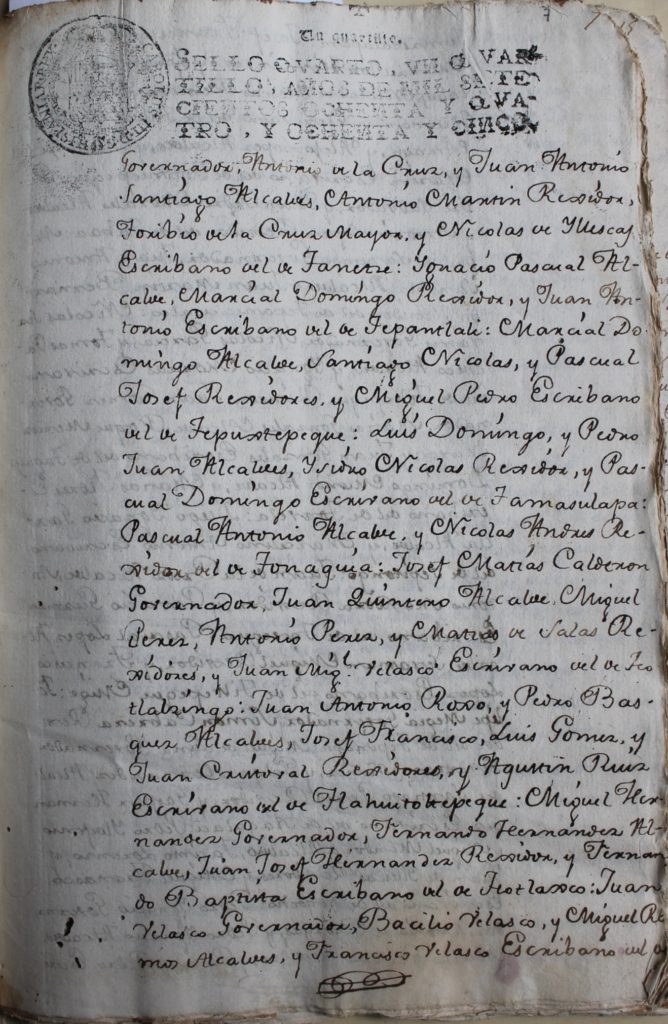 Un quartillo.
SELLO QVARTO, VN QVAR-
TILLO, AÑOS DE MIL SETE-
CIENTOS OCHENTA Y QVA-
TRO, Y OCHENTA Y CINCO.
Governador, Antonio de la Cruz, y Juan Antonio
Santiago Alcaldes, Antonio Martin Rexidor,
Toribio de la Cruz Mayor, y Nicolas de Yllescas
Escribano del de Tanetze: Ignacio Pascual Al-
calde, Marcial Domingo Rexidor, y Juan An-
tonio Escribano del de Tepantlali: Marcial Do-
mingo Alcalde, Santiago Nicolas, y Pascual
Josef Rexidores, y Miguel Pedro Escribano
del de Tepuxtepeque: Luis Domingo, y Pedro
Juan Alcaldes, Ysidro Nicolas Rexidor, y Pas-
cual Domingo Escrivano del de Tamasulapa:
Pascual Antonio Alcalde, y Nicolas Andres Re-
xidor del de Tonaguia: Josef Matias Calderon
Governador, Juan Quintero Alcalde, Miguel
Perez, Antonio Perez, y Matias de Salas Re-
xidores, y Juan Mig.l Velasco Escrivano del de Teo
tlalzingo: Juan Antonio Roxo, y Pedro Bas-
quez Alcaldes, Josef Francisco, Luis Gomez, y
Juan Cristoval Rexidores, y Agustin Ruiz
Escrivano del de Tlahuitoltepeque: Miguel Her-
nandez Governador, Fernando Hernandez Al-
calde, Juan Josef Hernandez Rexidor, y Fernan
do Baptista Escribano del de Teotlaxco: Juan
Velasco Governador, Bacilio Velasco, y Miguel Ra
mos Alcaldes, y Francisco Velasco Escribano del de